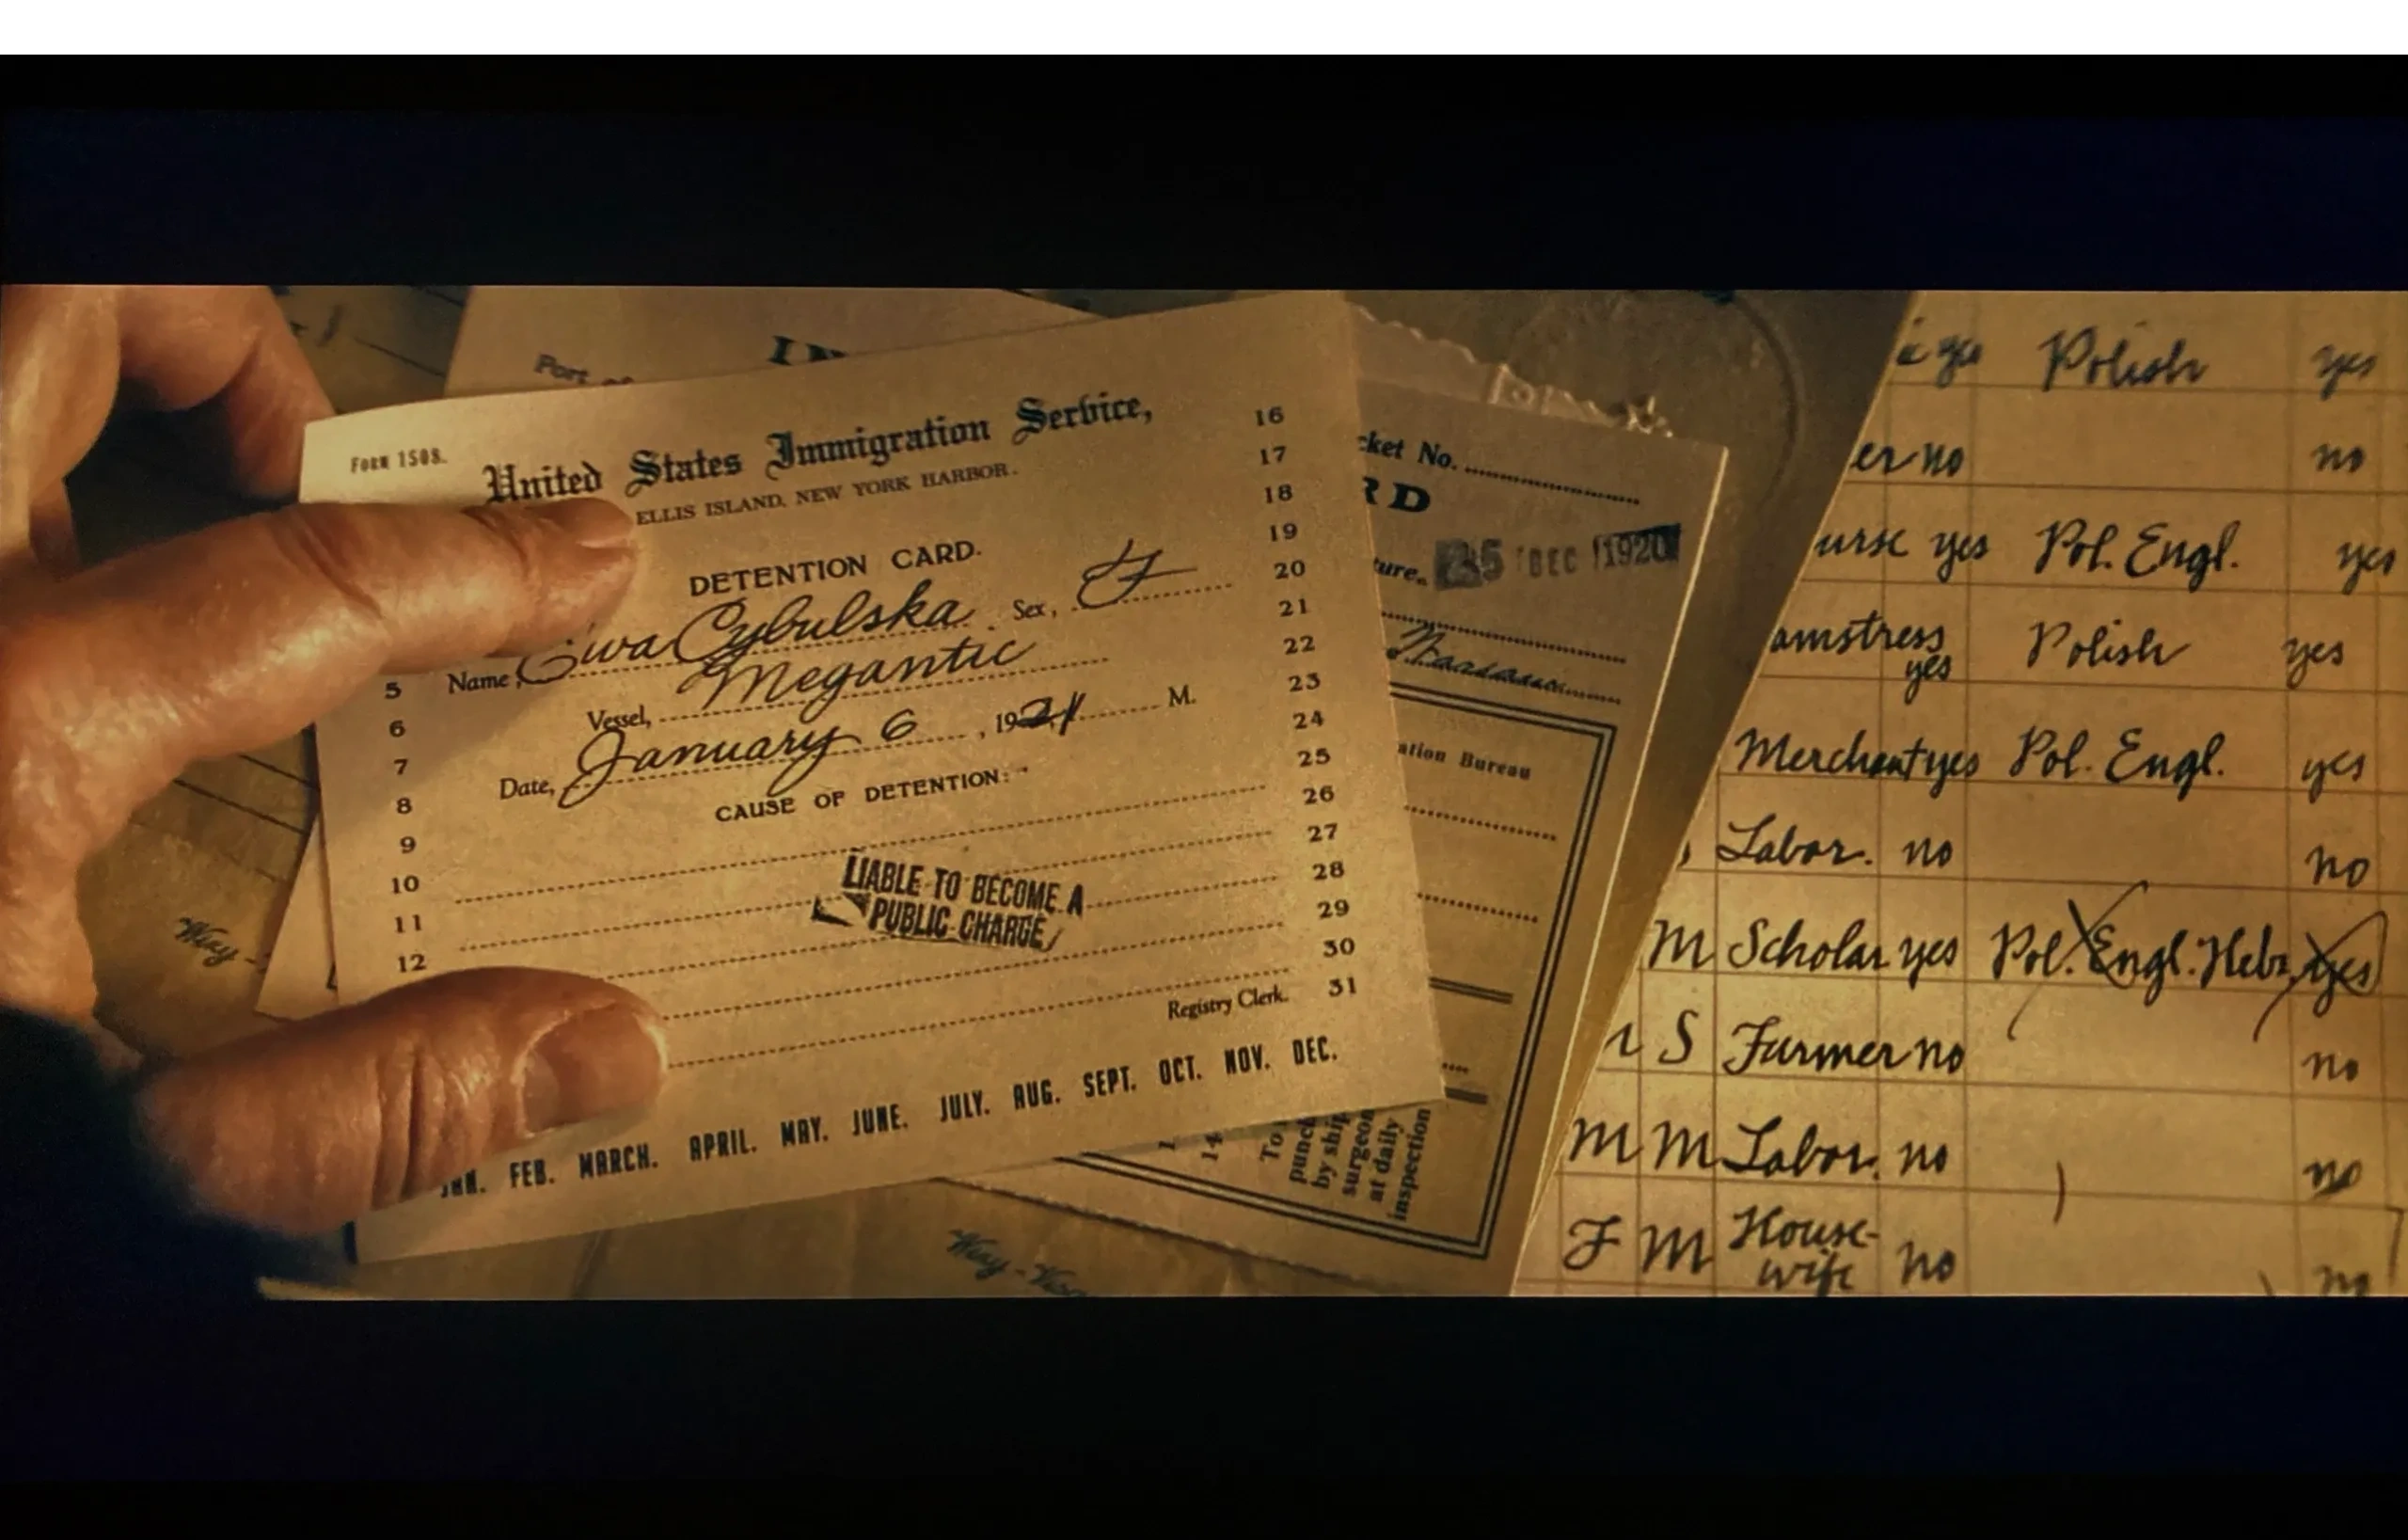 Form 1508.
United States Immigration Service,
ELLIS ISLAND, NEW YORK HARBOR.
DETENTION CARD.
Name, Ewa Cybulska Sex, F
Vessel, Megantic
Date, January 6, 1921 M.
CAUSE OF DETENTION:
LIABLE TO BECOME A
PUBLIC CHARGE
Registry Clerk.
5
6
7
8
9
10
11
12
16
17
18
19
20
21
22
23
24
25
26
27
28
29
30
31
JAN. FEB. MARCH. APRIL. MAY. JUNE. JULY. AUG. SEPT. OCT. NOV. DEC.
Port
No.
25 DEC 1920
Bureau
14
To
by ship
surgeon
at daily
inspection
yes Polish yes
no no
yes Pol. Engl. yes
yes Polish yes
Merchant yes Pol. Engl. yes
Labor. no no
M Scholar yes Pol. Engl. Hebr. yes
S Farmer no no
M M Labor. no no
F M House-
wife no no